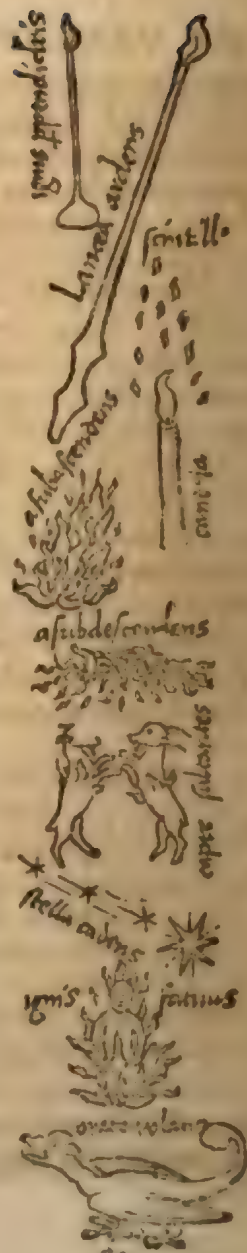 ignis
Lancea ardens
ſcintill
candela
aſub aſcendens
aſubdeſcendens
capre ſaltantes
ſtella cadens
ignis fatuus
draco volans